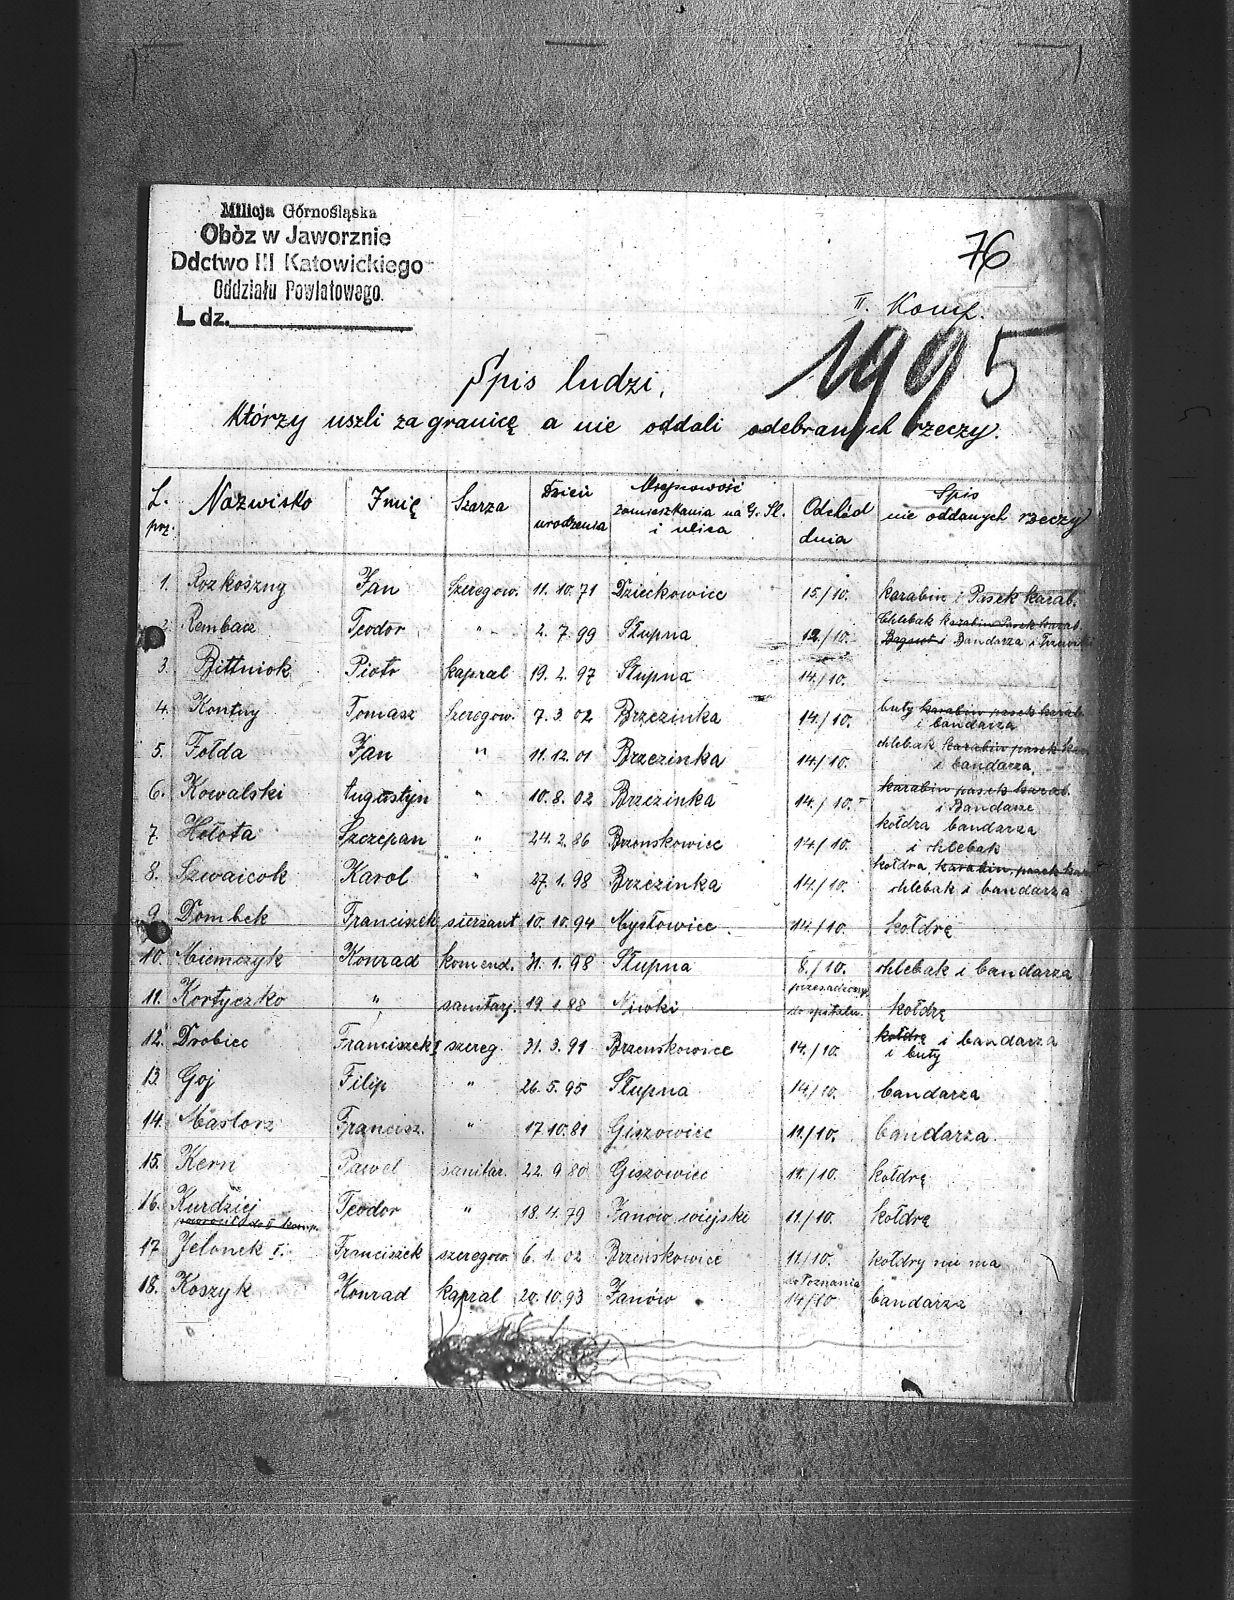 Milicja Górnośląska
Obòz w Jaworznie
Ddctwo III Katowickiego
Oddziału Powiatowego.
L dz.
76
II. Komp.
1995
Spis ludzi,
którzy uszli za granicę a nie oddali odebranych rzeczy.
L. prz. Nazwisko Imię Szarża Dzień urodzenia Miejscowość zamieszkania na G. Śl. i ulica Odszedł dnia Spis nie oddanych rzeczy
1. Rozkoszny Jan Szeregow. 11.10.71 Dzieckowice 15/10. karabin i Pasek karab.
2. Rembacz Teodor " 2.7.99 Słupna 12/10. Chlebak karabin Pasek karab. Bagnet i Bandarza i
3. Bittniok Piotr kapral 19.2.97 Słupna 14/10.
4. Kontny Tomasz Szeregow. 7.3.02 Brzezinka 14/10. buty karabin pasek karab. i bandarza
5. Fołda Jan " 11.12.01 Brzezinka 14/10. chlebak karabin pasek i bandarza
6. Kowalski Augustyn " 10.8.02 Brzezinka 14/10. karabin pasek karab. i Bandarze
7. Hołota Szczepan " 24.2.86 Brzenskowice 14/10. kołdra bandarza i chlebak
8. Szwaicok Karol " 27.1.98 Brzezinka 14/10. kołdra karabin, pasek chlebak i bandarza
9. Dombek Franciszek sierzant 10.10.94 Mysłowice. 14/10. kołdrę
10. Niemczyk Konrad komend. 31.1.98 Słupna 8/10. chlebak i bandarza
11. Kortyczko " sanitarj. 19.1.88 Niwki przesadzony do spitalu kołdrę
12. Drobiec Franciszek I szereg. 31.3.91 Brzenskowice 14/10. kołdrę i bandarza i buty
13. Goj Filip " 26.5.95 Słupna 14/10. bandarza
14. Mastorz Francisz. " 17.10.81 Giszowiec 11/10. bandarza.
15. Kern Paweł sanitar. 22.9.80 Giszowiec 11/10. kołdrę
16. Kurdziej Teodor " 18.4.79 Janów wiejski 11/10. kołdrę
powrócił do II komp.
17. Jelonek I. Franciszek szeregow. 6.1.02 Brzenskowice 11/10. kołdry nie ma
18. Koszyk Konrad kapral 20.10.93 Janów do Poznania 14/10 bandarza